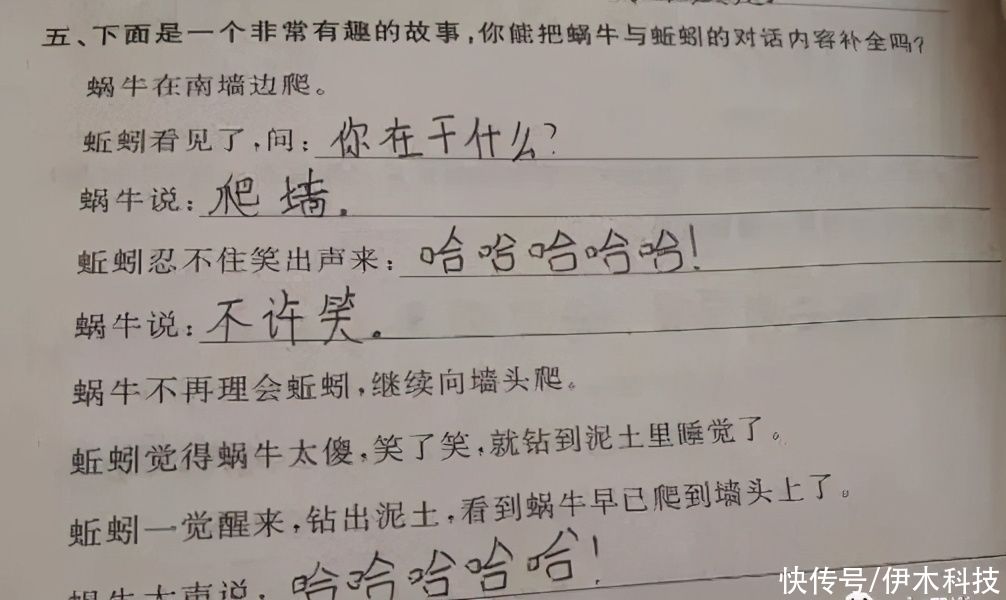 五、下面是一个非常有趣的故事,你能把蜗牛与蚯蚓的对话内容补全吗?
蜗牛在南墙边爬。
蚯蚓看见了,问:你在干什么?
蜗牛说:爬墙.
蚯蚓忍不住笑出声来:哈哈哈哈哈!
蜗牛说:不许笑。
蜗牛不再理会蚯蚓,继续向墙头爬。
蚯蚓觉得蜗牛太傻,笑了笑,就钻到泥土里睡觉了。
蚯蚓一觉醒来,钻出泥土,看到蜗牛早已爬到墙头上了。
蜗牛大声说:哈哈哈哈哈!
快传号/伊木科技